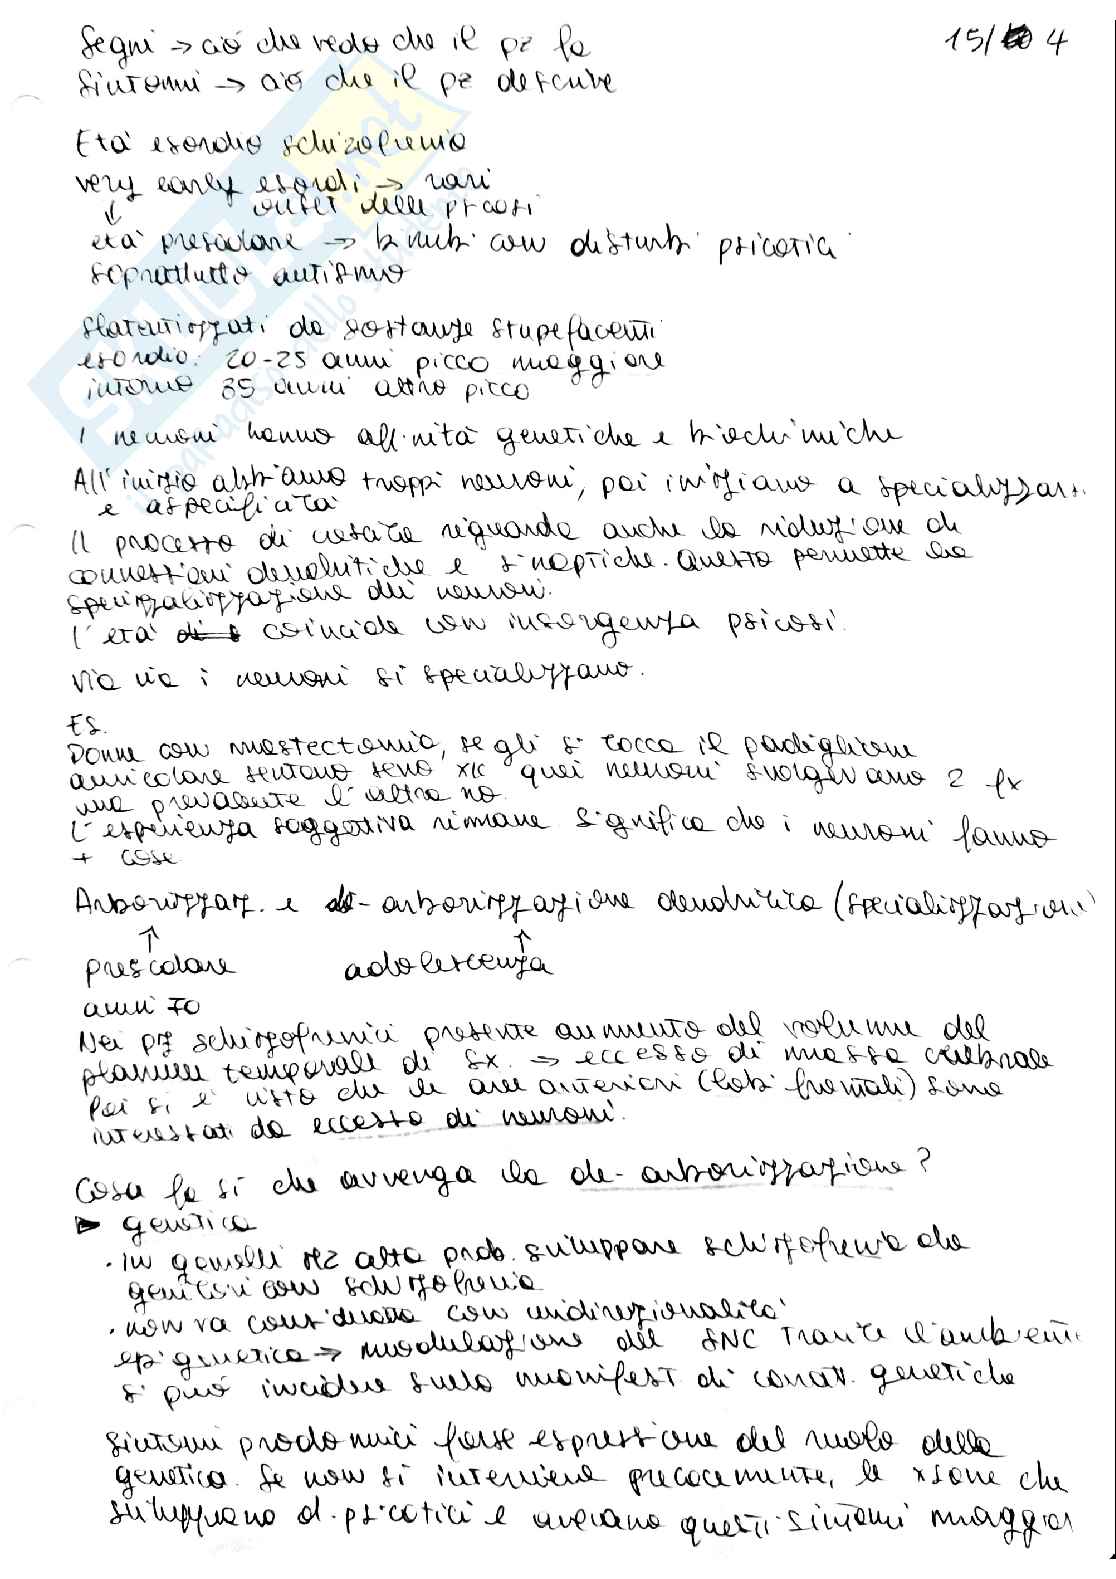 Segni → ciò che vedo che il pz fa 15/ 4
Sintomi → ciò che il pz descrive
Età esordio schizofrenia
very early esordi → rari
onset delle psicosi
↓
età prescolare → bimbi con disturbi psicotici
soprattutto autismo
slatentizzati da sostanze stupefacenti
esordio: 20-25 anni picco maggiore
intorno 35 anni altro picco
I neuroni hanno affinità genetiche e biochimiche
All'inizio abbiamo troppi neuroni, poi iniziano a specializzarsi
e aspecificità
Il processo di crescita riguarda anche la riduzione di
connessioni dendritiche e sinaptiche. Questo permette la
specizzalizzazione dei neuroni.
L'età coincide con insorgenza psicosi.
Via via i neuroni si specializzano.
ES.
Donne con mastectomia, se gli si tocca il padiglione
auricolare sentono seno xk quei neuroni svolgevano 2 fx
una prevalente l'altra no.
L'esperienza soggettiva rimane. Significa che i neuroni fanno
+ cose
Arborizzaz. e de-arborizzazione dendritica (specializzazioni)
↑ ↑
prescolare adolescenza
anni 70
Nei pz schizofrenici presente aumento del volume del
planum temporale di sx. → eccesso di massa cerebrale
Poi si è visto che le aree anteriori (lobi frontali) sono
interessati da eccesso di neuroni.
Cosa fa si che avvenga la de-arborizzazione?
► genetica
· in gemelli MZ alta prob. sviluppare schizofrenia da
genitori con schizofrenia
· non va considerata con unidirezionalità
epigenetica → modulazione del SNC Tramite l'ambiente
si può incidere sulla manifest di caratt. genetiche
Sintomi prodomici forse espressione del ruolo della
genetica. Se non si interviene precocemente, le xsone che
sviluppano d. psicotici e avevano questi sintomi maggior
SKUOLA.net
il paradiso dello studente